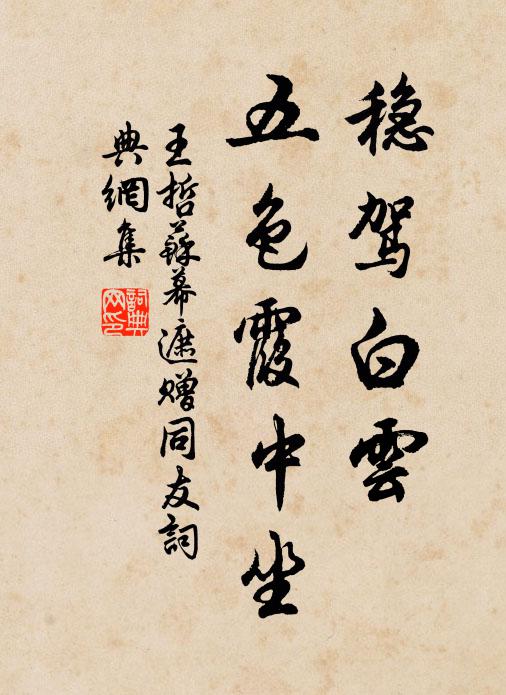 穏駕白雲
五色霞中坐
王哲蘇幕遮贈同友詞
典網集
詞典網印